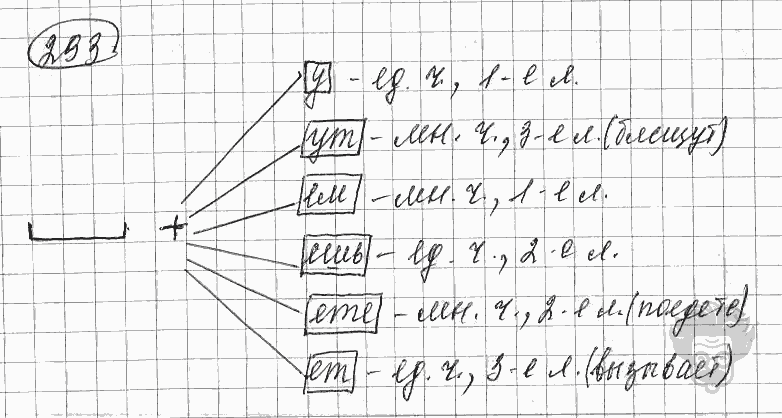 293
у - ед. ч., 1-е л.
ут - мн. ч., 3-е л. (блещут)
ем - мн. ч., 1-е л.
+ ешь - ед. ч., 2-е л.
ете - мн. ч., 2-е л. (поедете)
ет - ед. ч., 3-е л. (вызывает)